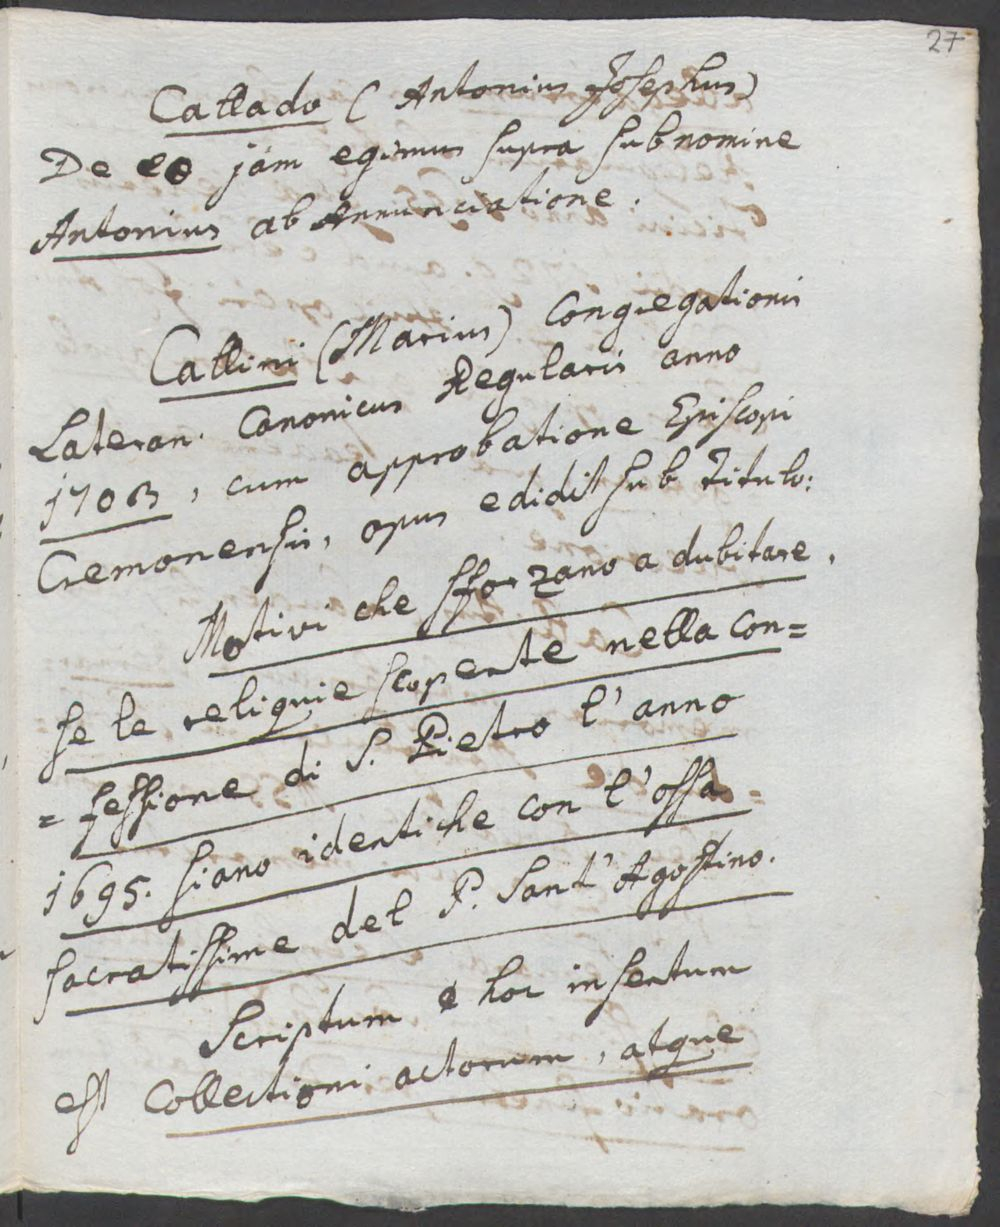 27
Callado (Antonius Josephus)
De eo jam egimus supra sub nomine
Antonius ab Annunciatione.
Callini (Marius) Congregationis
Lateran. Canonicus Regularis anno
1703, cum approbatione Episcopi
Cremonensis, opus edidit sub titulo:
Motivi che sforzano a dubitare,
se le reliquie scoperte nella con=
=fessione di S. Pietro l'anno
1695. siano identiche con l'ossa
sacratissime del P. Sant' Agostino.
Scriptum hoc insertum
est Collectioni actorum, atque